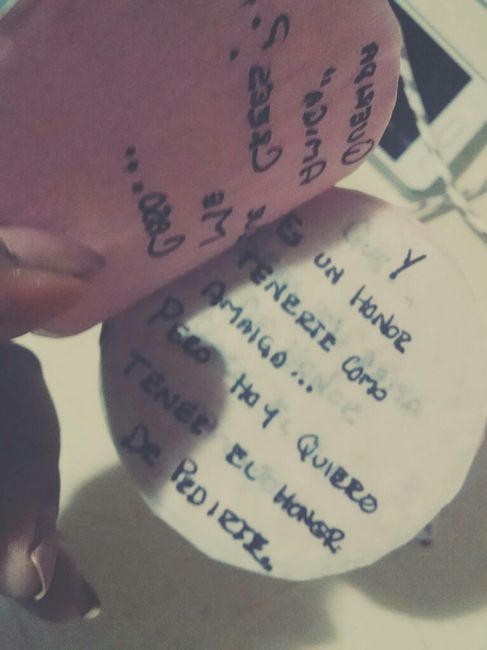 QUERIDA
"AMIGA"
ME
Y
ES UN HONOR
TENERTE COMO
AMAIGO...
PERO HOY QUIERO
TENER EL HONOR
DE PEDIRTE.